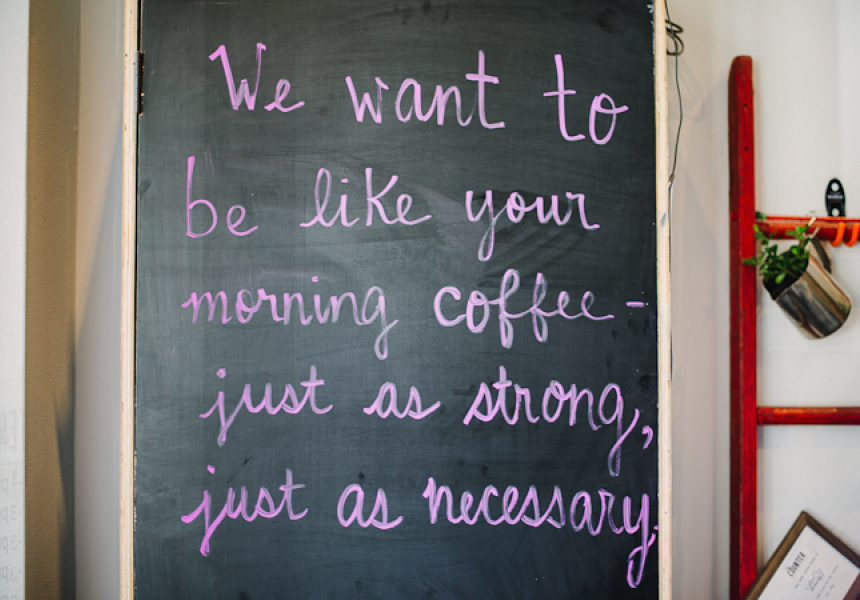 We want to
be like your
morning coffee-
just as strong,
just as necessary.
COUNTER